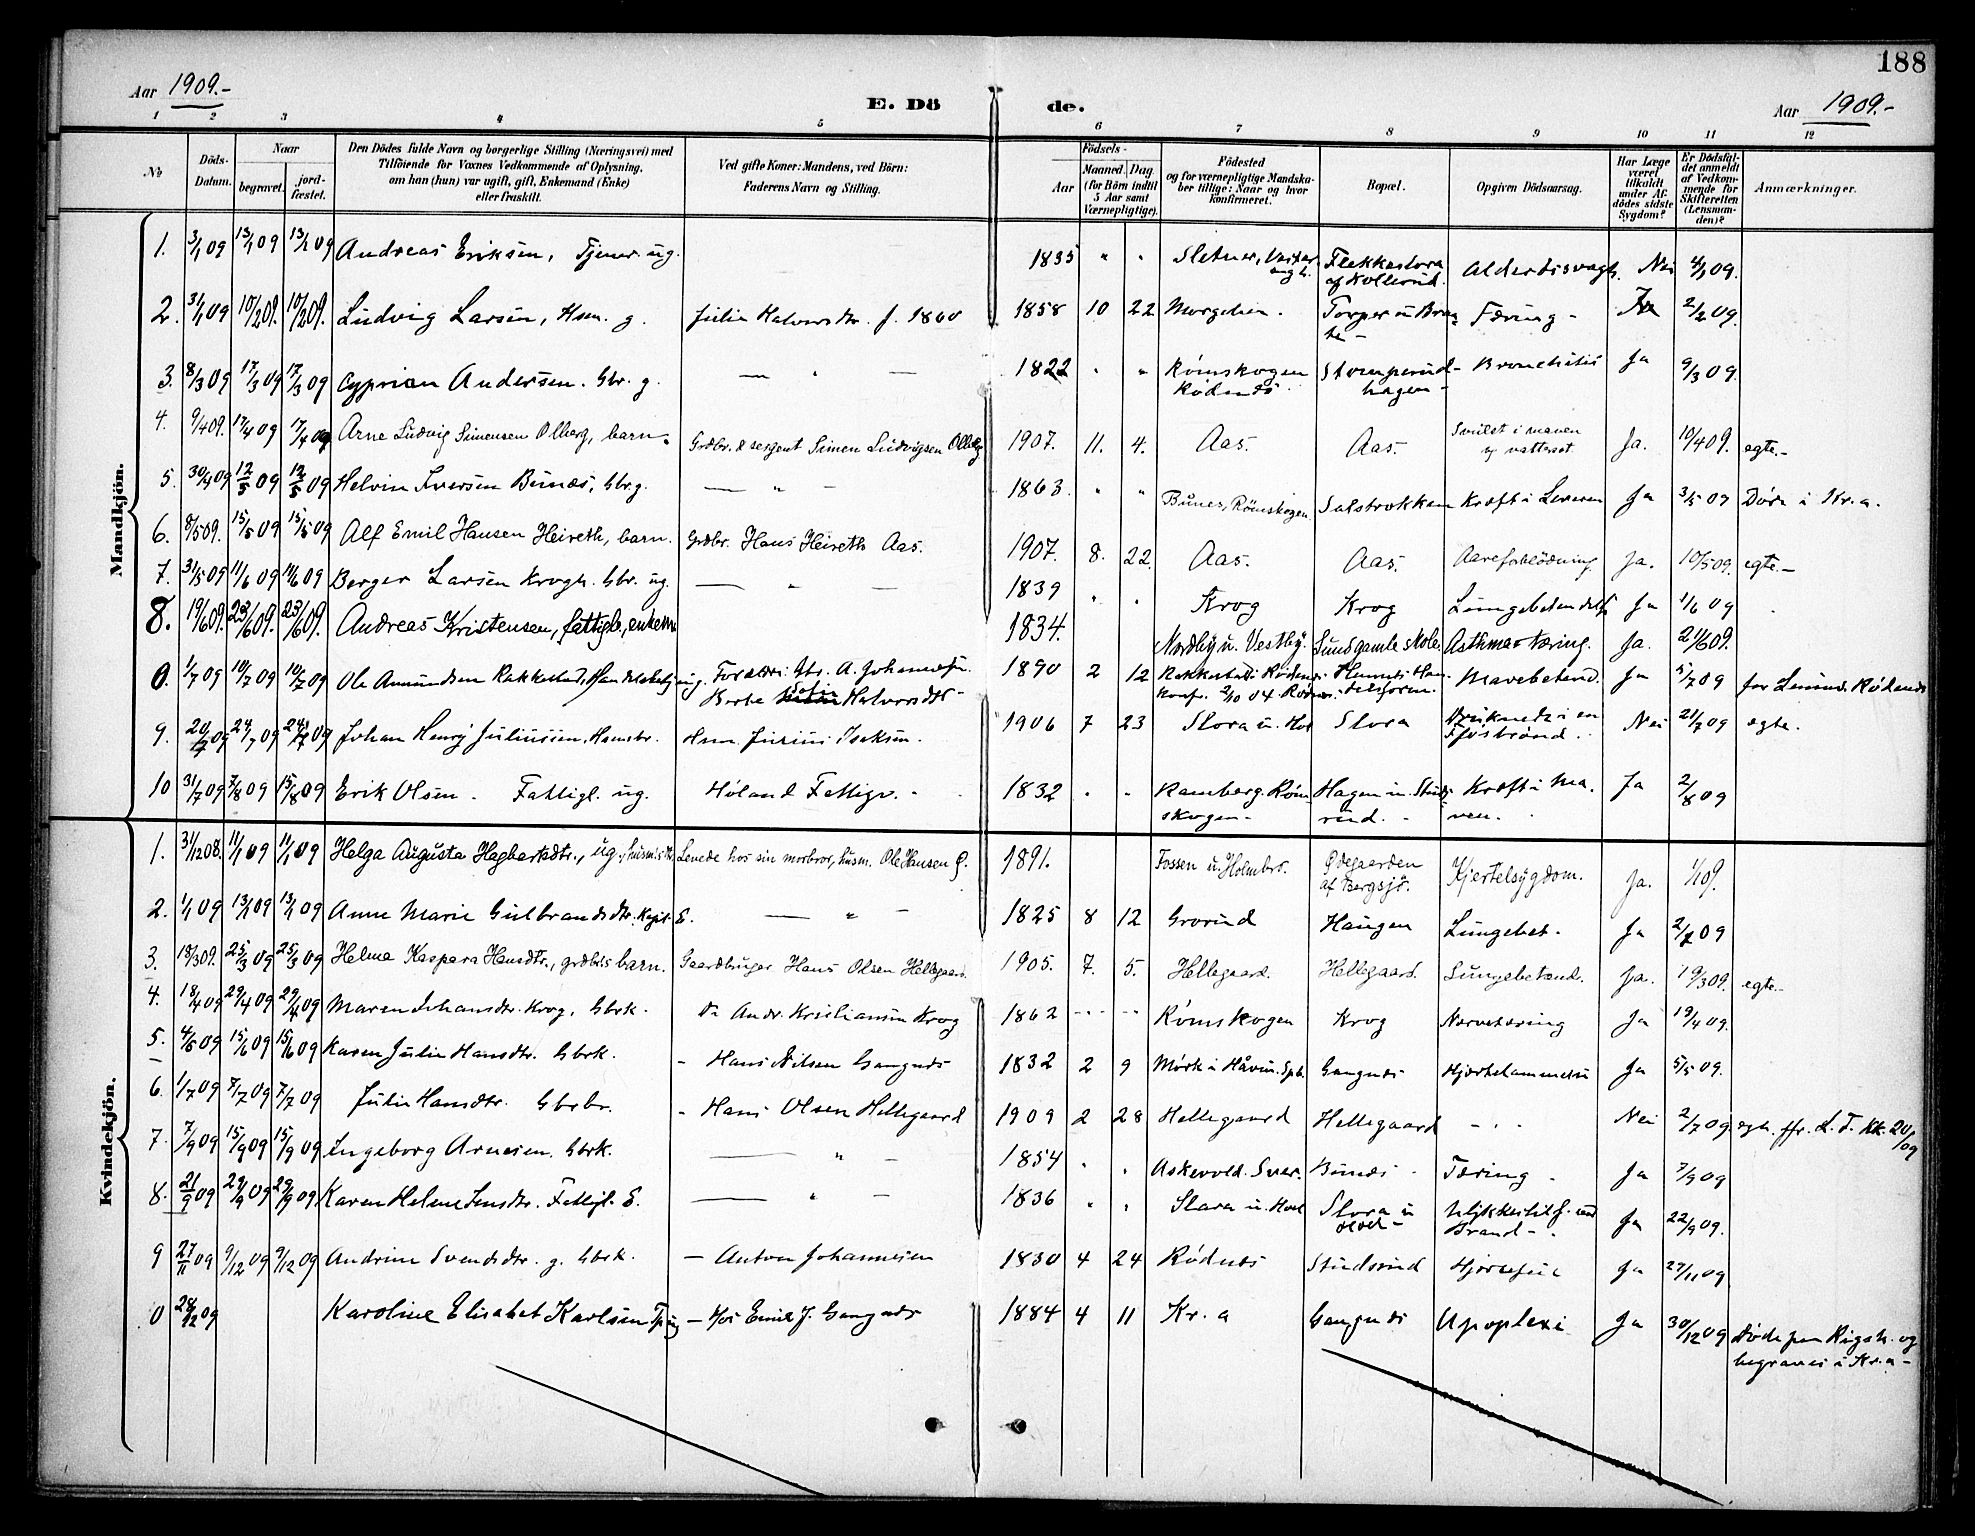 188
Aar 1909.-
E. Dö de.
Aar 1909.-
1 2 3 4 5 6 7 8 9 10 11 12
No
Döds-Datum.
Naar
begravet.
jordfæstet.
Den Dödes fulde Navn og borgerlige Stilling (Næringsvei) med
Tilföiende for Voxnes Vedkommende af Oplysning,
om han (hun) var ugift, gift, Enkemand (Enke)
eller fraskilt.
Ved gifte Koner: Mandens, ved Börn:
Faderens Navn og Stilling.
Födsels-
Aar
Maaned. Dag
(for Börn indtil
5 Aar samt
Værnepligtige).
Födested
og for værnepligtige Mandskaber tillige: Naar og hvor
konfirmeret.
Bopæl.
Opgiven Dödsaarsag.
Har Læge været tilkaldt under Afdödes sidste Sygdom?
Er Dödsfaldet anmeldt af Vedkommende for Skifteretten (Lensmanden)?
Anmærkninger.
Mandkjön.
1. 3/1 09 13/1 09 13/1 09 Andreas Eriksen, Tjener ug. 1835 " " Sletner, Flekkestora af Kollerud. Alderdomsvagh. Nei 4/1 09.
2. 31/1 09 10/2 09. 10/2 09. Ludvig Larsen, Hsm. g. Julie Halvorsdtr. f. 1860 1858 10 22 Morgedien. Torper Tæring - Ja 2/2 09.
3. 8/3 09 17/3 09 17/3 09 Cyprian Andersen. Gbr. g. — " — 1822 " " Römskogen Rödenes Stomperudhagen - Bronchitis Ja 9/3 09.
4. 9/4 09. 17/4 09 17/4 09 Arne Ludvig Simensen Olberg, barn. Grdbr. & sergent Simen Ludvigsen Olberg 1907. 11. 4. Aas. Aas. Svulst i maven og vattersot. Ja. 10/4 09. egte.-
5. 30/4 09 12/5 09 12/5 09 Helvin Iversen Bunæs, Gbr g. — " — 1863. " " Bunes, Römskogen Salstrokken Kræft i Leveren Ja 3/5 09 Döde i Kr.a.
6. 8/5 09. 15/5 09 15/5 09 Alf Emil Hansen Heireth, barn. Grdbr. Hans Heireth Aas. 1907. 8. 22. Aas. Aas. Aareforblödning Ja. 10/5 09. egte.-
7. 31/5 09 11/6 09 11/6 09 Berger Larsen Krogh. Gbr. ug. — " — 1839 " " Krog Krog Lungebetændelse Ja 1/6 09
8. 19/6 09. 23/6 09. 23/6 09. Andreas Kristensen, fattigl., enkem. 1834. Nordby u. Vestby. Sund gamle skole. Asthma & Tæring. Ja. 21/6 09.
0. 1/7 09 10/7 09 10/7 09 Ole Amundsen Rakkestad, Handelsbetj. ug. Forældre: Gbr. A. Johannesen Berte Sofie Halvorsdtr - 1890 2 12 Rakkestad i Rödenes konf. 2/10 04 Rödnes. Mavebetænd. Ja 5/7 09 for Lensm. i Rödenes
9. 20/7 09 24/7 09 24/7 09 Johan Henry Juliussen, Hsmsbr. Hsm. Julius Isaksen. 1906 7 23 Slora u. Hvl Slora Druknede i en Nei 21/7 09 egte.
10 31/7 09 7/8 09 15/8 09 Erik Olsen. Fattigl. ug. Höland Fattigv. 1832 " " Ramberg. Römskogen - Hagen u. Studsrud. Kræft i Maven. Ja 2/8 09
Kvindekjön.
1. 31/12 08. 11/1 09 11/1 09 Helga Augusta Hagbartsdtr., ug., husmdtr. Levede hos sin morbror, husm. Ole Hansen Ö. 1891. Fossen u. Holmbr. Ödegaarden af Bergsjö. Kjertelsygdom. Ja. 1/1 09.
2. 1/1 09 13/1 09 13/1 09 Anne Marie Gulbrandsdtr. E. — " — 1825 8 12 Grorud Haugen Lungebet. Ja 2/1 09
3. 18/3 09. 25/3 09 25/3 09 Helma Kaspara Hansdtr., grdbrs barn. Gaardbruger Hans Olsen Hellegaard. 1905. 7. 5. Hellegaard. Hellegaard. Lungebetænd. Ja. 19/3 09. egte.-
4. 18/4 09 29/4 09 29/4 09 Maren Johansdtr. Krog, Gbrk. Do Andr. Kristiansen Krog 1862 Römskogen Krog Nervetæring Ja 19/4 09.
5. 4/6 09 15/6 09 15/6 09 Karen Julie Hansdtr. Gbrk. - Hans Nilsen Gangnæs 1832 2 9 Mörk i Håvin. Spb. Gangnæs Hjertelammelse Ja 5/5 09.
6. 1/7 09 7/7 09 7/7 09 Julie Hansdtr. Gbrbr. - Hans Olsen Hellegaard 1909 2 28 Hellegaard Hellegaard - " - Nei 2/7 09 egte.
7. 7/9 09 15/9 09 15/9 09 Ingeborg Arnesen. Gbrk. — " — 1854 " " Askevold. Bunæs Tæring Ja 7/9 09
8. 21/9 09 29/9 09 29/9 09 Karen Helene Jensdtr. Fattigl. E. — " — 1836 " " Slora u. Hvl Slora u Ulykkestilf. ved Brand - Ja 22/9 09.
9 27/11 09 9/12 09 9/12 09 Andrine Svendsdtr. g. Gbrk. - Anton Johannesen 1830 4 24 Rödnes Studsrud Hjertefeil Ja 27/11 09
0 28/12 09 Karoline Elisabet Karlsen Tp ug - Hos Emil J. Gangnæs 1884 4 11 Kr.a Gangnæs Apoplexi Ja 30/12 09 Döde paa Rigsh. og begraves i Kr.a -